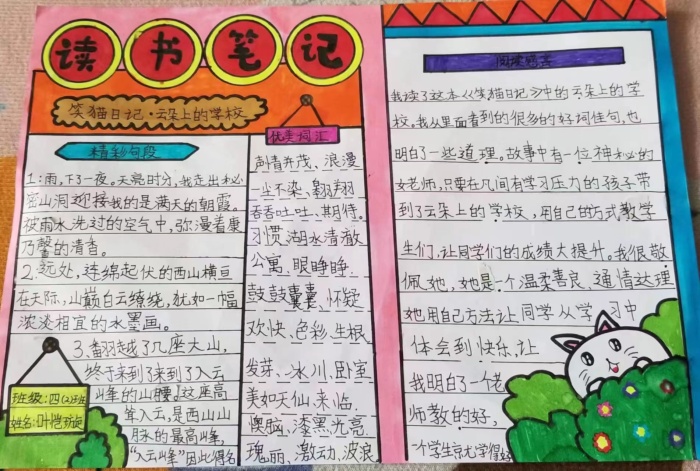 读书笔记
笑猫日记·云朵上的学校
精彩句段
1:雨,下了一夜。天亮时分,我走出秘
密山洞迎接我的是满天的朝霞。
被雨水洗过的空气中,弥漫着康
乃馨的清香。
2.远处,连绵起伏的西山横亘
在天际,山巅白云缭绕,犹如一幅
浓淡相宜的水墨画。
3.翻越了几座大山,
终于来到了来到了入云
峰的山腰!这座高
耸入云,是西山山
脉的最高峰,
"入云峰"因此得名
班级:四(2)班
姓名:叶恺
优美词汇
声情并茂、浪漫
一尘不染、翱翔
吞吞吐吐、期待。
习惯、湖水清澈
公寓、眼睁睁、
鼓鼓囊囊、怀疑
欢快、色彩、生根、
发芽、冰川、卧室
美如天仙、来临、
懊脑、漆黑光亮
瑰丽、激动、波浪
我读了这本《笑猫日记》中的云朵上的学
校。我从里面看到的很多的好词佳句,也
明白了一些道理。故事中有一位神秘的
女老师,只要在人间有学习压力的孩子带
到了云朵上的学校,用自己的方式教学
生们,让同学们的成绩大提升。我很敬
佩她,她是一个温柔善良、通情达理
她用自己方法让同学从学习中
体会到快乐,让
我明白了一个老
师教的好,
一个学生就学得好